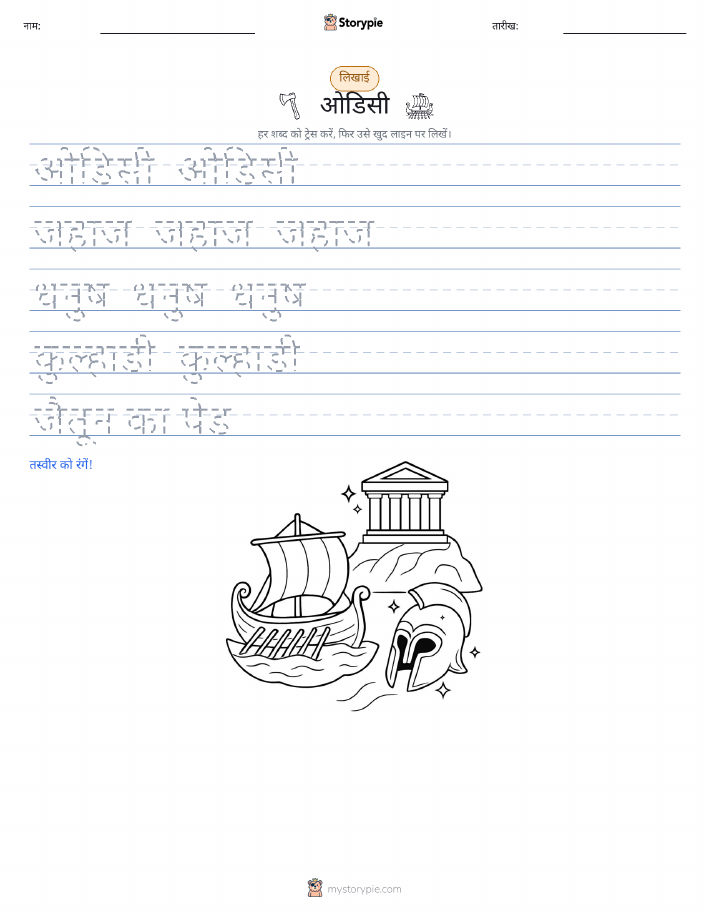 नाम:
Storypie
तारीख:
लिखाई
ओडिसी
हर शब्द को ट्रेस करें, फिर उसे खुद लाइन पर लिखें।
ओडिसी ओडिसी
जहाज जहाज जहाज
धनुष धनुष धनुष
कुल्हाडी कुल्हाडी
जैतून का पेड
तस्वीर को रंगें!
mystorypie.com